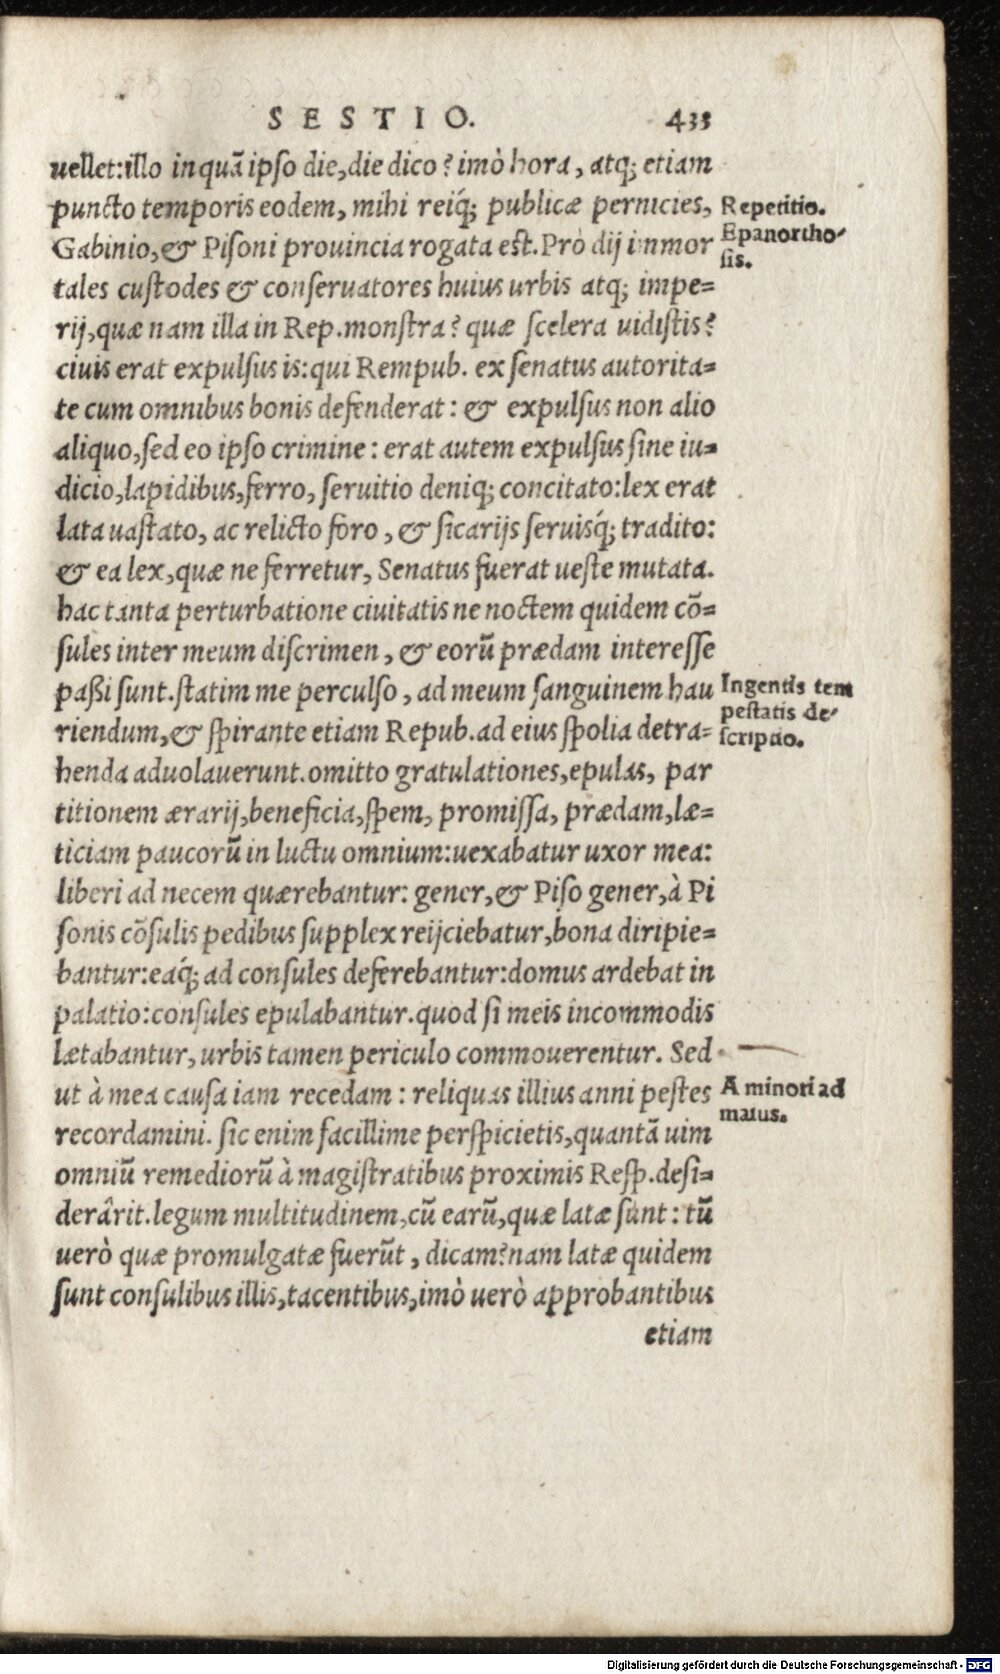 SESTIO. 433
uellet:illo inquã ipso die,die dico? imò hora, atq; etiam
puncto temporis eodem, mihi reiq́; publicæ pernicies,
Repetitio.
Gabinio,& Pisoni prouincia rogata est.Prò dij inmor
Epanortho-
sis.
tales custodes & conseruatores huius urbis atq; impe=
rij,quæ nam illa in Rep.monstra? quæ scelera uidistis?
ciuis erat expulsus is:qui Rempub. ex senatus autorita=
te cum omnibus bonis defenderat: & expulsus non alio
aliquo,sed eo ipso crimine: erat autem expulsus sine iu=
dicio,lapidibus,ferro, seruitio deniq; concitato:lex erat
lata uastato, ac relicto foro, & sicarijs seruisq́; tradito:
& ea lex,quæ ne ferretur, Senatus fuerat ueste mutata.
hac tanta perturbatione ciuitatis ne noctem quidem cõ=
sules inter meum discrimen, & eorũ prædam interesse
paßi sunt.statim me perculso, ad meum sanguinem hau
Ingentis tem
riendum,& spirante etiam Repub.ad eius spolia detra=
pestatis de-
scriptio.
henda aduolauerunt.omitto gratulationes,epulas, par
titionem ærarij,beneficia,spem, promissa, prædam,læ=
ticiam paucorũ in luctu omnium:uexabatur uxor mea:
liberi ad necem quærebantur: gener,& Piso gener,à Pi
sonis cõsulis pedibus supplex reijciebatur,bona diripie=
bantur:eaq́; ad consules deferebantur:domus ardebat in
palatio:consules epulabantur.quod si meis incommodis
lætabantur, urbis tamen periculo commouerentur. Sed
ut à mea causa iam recedam: reliquas illius anni pestes
A minori ad
recordamini. sic enim facillime perspicietis,quantã uim
maius.
omniũ remediorũ à magistratibus proximis Resp.desi=
derârit.legum multitudinem,cũ earũ,quæ latæ sunt: tũ
uerò quæ promulgatæ fuerũt, dicam?nam latæ quidem
sunt consulibus illis,tacentibus,imò uerò approbantibus
etiam
Digitalisierung gefördert durch die Deutsche Forschungsgemeinschaft - DFG